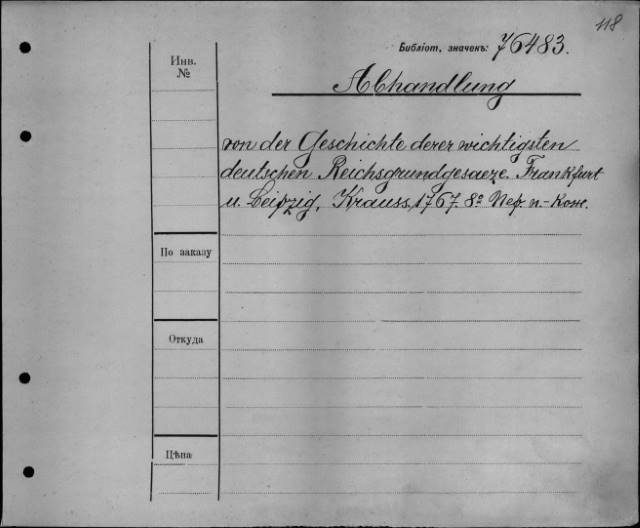 118
Библіот. значенъ: 76483.
Инв.
№
Abhandlung
von der Geschichte derer wichtigsten
deutschen Reichsgrundgesaeze. Frankfurt
u. Leipzig, Krauss, 1767. 8º Пер. п.-кож.
По заказу
Откуда
Цѣна